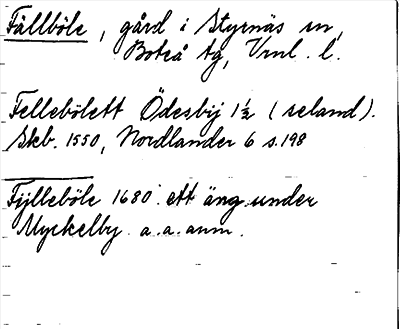 Fällböle, gård i Styrnäs sn,
Boteå tg, Vrnl. l.
Fellebölett Ödesbij 1½ (seland).
Skb. 1550, Nordlander 6 s. 198
Fijlleböle 1680. ett äng under
Myckelby. a. a. anm.